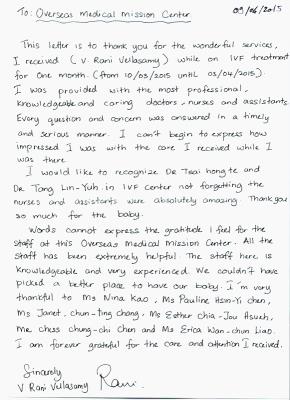 To: Overseas Medical Mission Center 03/04/2015
This letter is to thank you for the wonderful services,
I received (V. Rani Vellasamy) while on IVF treatment
for one month. (from 10/03/2015 until 03/04/2015).
I was provided with the most professional,
knowledgeable and caring doctors, nurses and assistants.
Every question and concern was answered in a timely
and serious manner. I can't begin to express how
impressed I was with the care I received while I
was there.
I would like to recognize Dr Tsai hong te and
Dr Tong Lin-Yuh in IVF center not forgetting the
nurses and assistants were absolutely amazing. Thank you
so much for the baby.
Words cannot express the gratitude I feel for the
staff at this Overseas Medical Mission Center. All the
staff has been extremely helpful. The staff here is
knowledgeable and very experienced. We couldn't have
picked a better place to have our baby. I'm very
thankful to Ms Nina Kao, Ms Pauline Hsin-Yi chen,
Ms Janet, chun-ting chang, Ms Esther chia-Jou Hsueh,
Ms Chess chung-chi Chen and Ms Erica Wan-chun Liao.
I am forever grateful for the care and attention I received.
Sincerely
V Rani Vellasamy Rani.